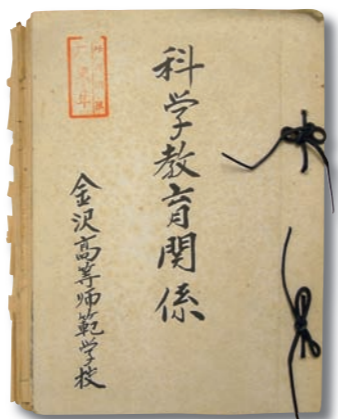 科学教育関係
金沢高等師範学校